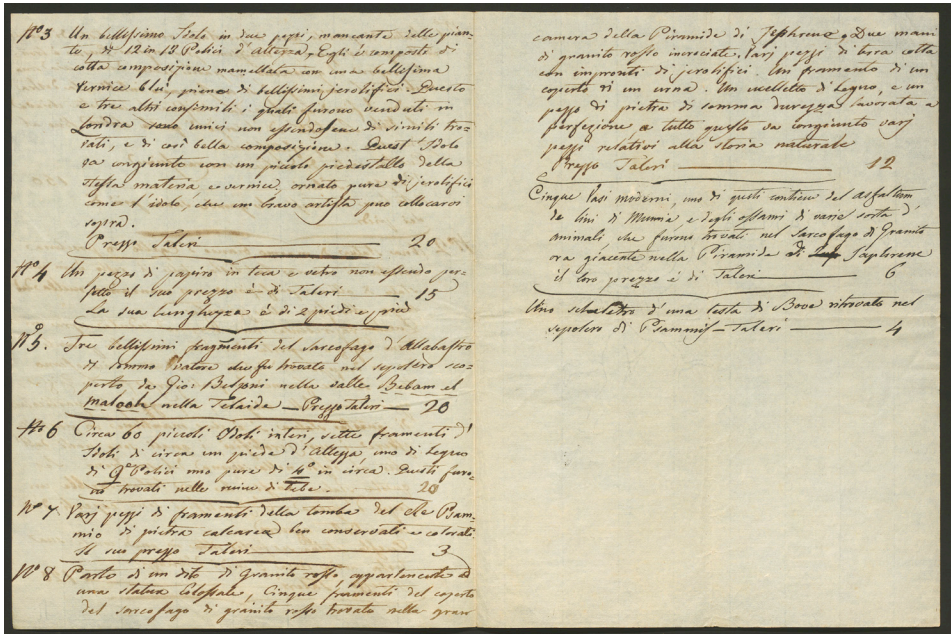 N.o 3 Un bellissimo Idolo in due pezzi, mancante delle pian=
te, di 12 in 13 Polici d'Altezza, Egli é composto di
cotta composizione mamellata con una bellissima
Vernice blù, piena di bellissimi jerolifici. Questo
e tre altri consimili i quali furono venduti in
Londra sono unici non essendosene di simili tro=
vati, e di così bella composizione. Quest'Idolo
va congiunto con un piccolo piedestallo della
stessa materia e vernice, ornato pure di jerolifici
come l'idolo, che un bravo artista può collocarvi
sopra.
Prezzo Taleri — 20
N.o 4 Un pezzo di papiro in teca e vetro non essendo per=
fetto il suo prezzo é di Taleri — 15
La sua lunghezza é di 2 piedi e più
N.o 5. Tre bellissimi fragmenti del sarcofago d'Allabastro
di sommo valore che fu trovato nel sepolcro sco=
perto da Gio: Belzoni nella valle Bebam el
malook nella Tebaide — Prezzo Taleri — 20
N.o 6 Circa 60 piccoli Idoli interi, sette framenti d'
Idoli di circa un piede d'Altezza uno di Legno
di 9.o Polici uno pure di 4.o in circa. Questi furo=
no trovati nelle ruine di Tebe. 20
N.o 7 Varj pezzi di framenti della tomba del Re Psam=
mio di pietra calcarea ben conservati e colorati
Il suo prezzo Taleri — 3
N.o 8 Parte di un dito di Granito rosso, appartenente ad
una statua Colossale, Cinque framenti del coperto
del sarcofago di granito rosso trovato nella gran
camera della Piramide di Jephrene, Due mani
di granito rosso incrociate. Varj pezzi di terra cotta
con impronti di jerolifici. Un framento di un
coperto di un urna. Un uccelletto di Legno, e un
pezzo di pietra di somma durezza lavorata a
perfezione a tutto questo va congiunto varj
pezzi relativi alla storia naturale
Prezzo Taleri — 12
Cinque Vasi moderni, uno di questi contiene del asfaltum
de lini di Mumie e degli ossami di varie sorta d'
animali che furno trovati nel Sarcofago di Granito
ora giacente nella Piramide di Saphrene
il loro prezzo é di Taleri — 6
Uno scheletro d'una testa di Bove ritrovato nel
sepolcro di Psammis — Taleri — 4